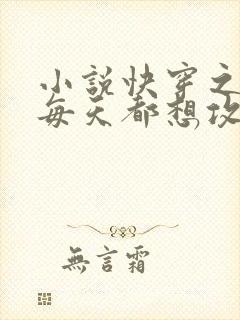 小說快穿之
每天都想攻
無言霜